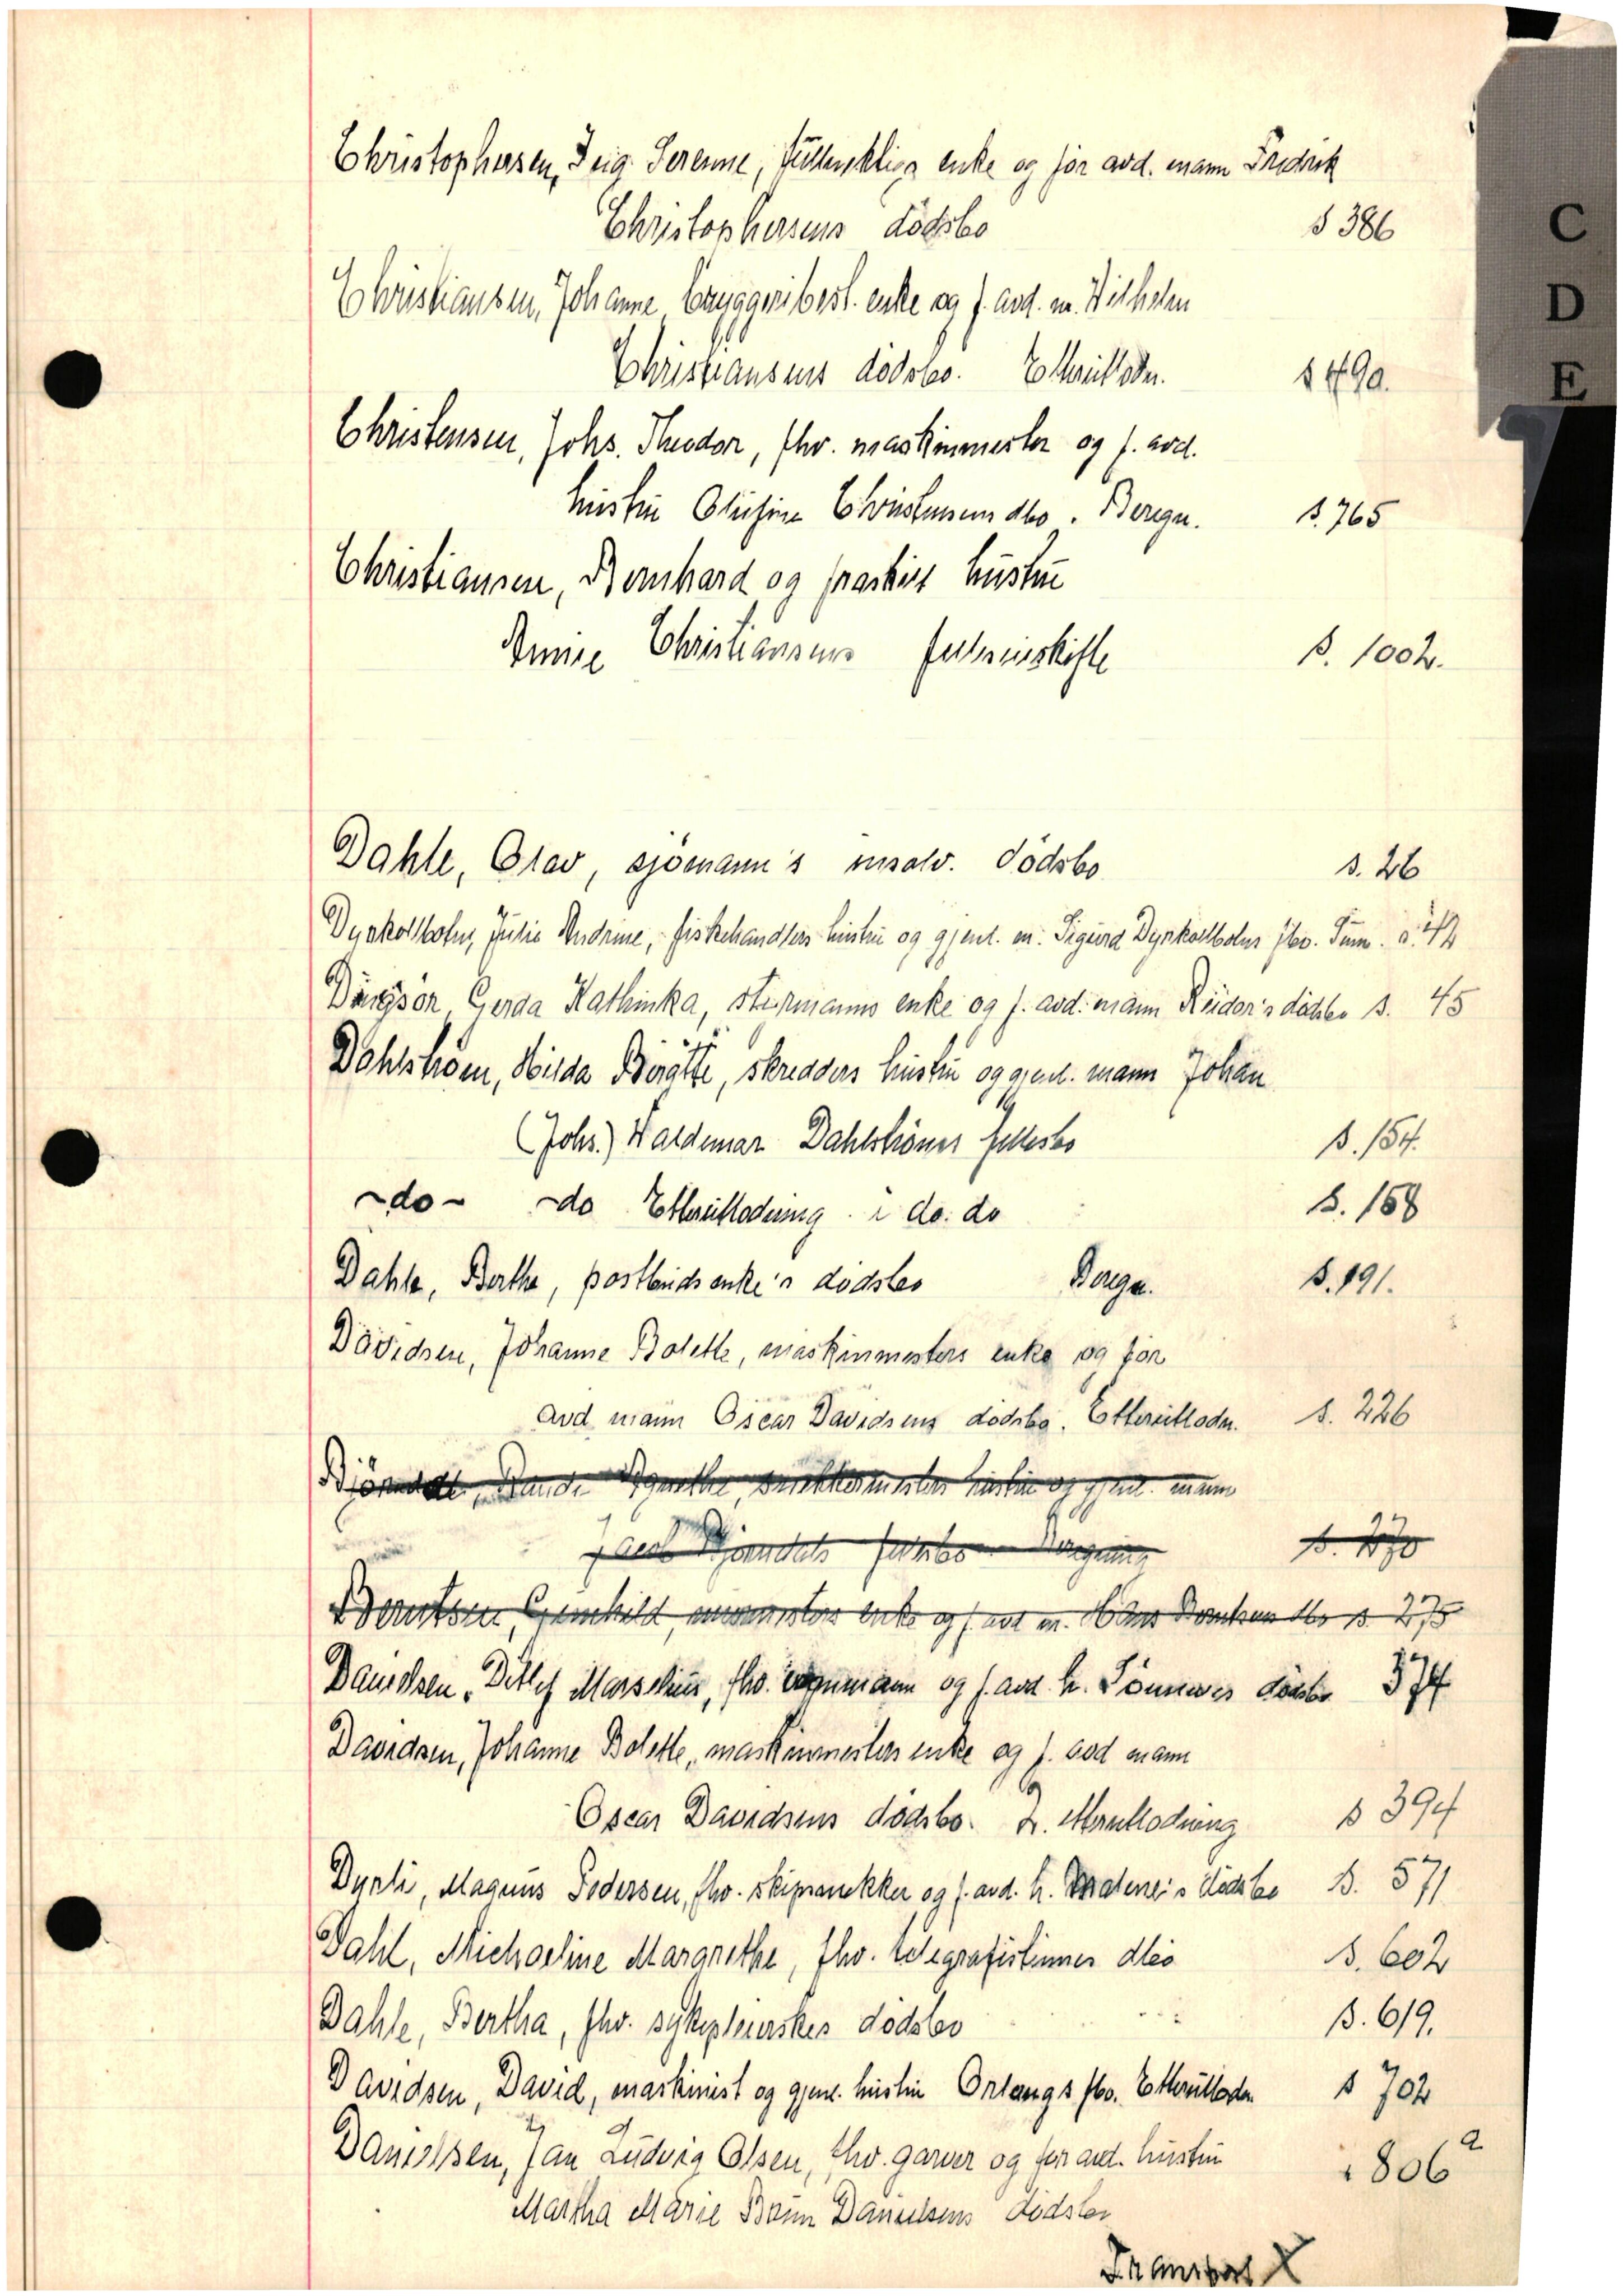 Christophersen, Serenne, fullmektigs enke og för avd. mann Fredrik
Christophersens dödsbo s 386
C
D
E
Christiansen, Johanne bryggeribest. enke og f. avd. m. Wilhelm
Christiansens dödsbo. Etterutlodn. s 490.
Christensen, Johs. Theodor, fhv. maskinmester og f. avd.
hustru Olufine Christensens dbo. Beregn. s. 765
Christiansen, Bernhard og fraskilt hustru
Annie Christiansens fellesieskifte s. 1002.
Dahle, Olav, sjömann's insolv. dödsbo s. 26
Dyrkolbotn, Julie Andrine, fiskehandlers hustru og gjenl. m. Sigurd Dyrkolbotns fbo. s. 42
Gerda Kathinka, styrmanns enke og f. avd. mann Reidar's dödsbo s. 45
Dahlström, Hilda Birgitte, skredders hustru og gjenl. mann Johan
(Johs.) Waldemar Dahlströms fellesbo s. 154.
-do- -do Etterutlodning i do. do s. 158
Dahle, Berthe, postbuds enke's dödsbo Beregn. s. 191.
Davidsen, Johanne Bolette, maskinmesters enke og för
avd mann Oscar Davidsens dödsbo. Etterutlodn. s. 226
Björndal, Agnethe, hustru og gjenl. mann
Jacob Björndals fellesbo Beregning s. 270
Berntsen, Gunhild, murmesters enke og f. avd m. Hans Berntsens dbo s. 275
Danielsen, Ditlef Marselius, fhv. og f. avd h. Sönneves dödsbo 374
Davidsen, Johanne Bolette, maskinmesters enke og f. avd mann
Oscar Davidsens dödsbo. 2. etterutlodning s 394
Dyrli, Magnus Pedersen, fhv. skipssnekker og f. avd. h. Madene's dödsbo s. 571
Dahl, Michaeline Margrethe, fhv. telegrafistinnes dbo s. 602
Dahle, Bertha, fhv. sykepleierskes dödsbo s. 619.
Davidsen, David, maskinist og gjenl. hustru Orlaugs fbo. Etterutlodn s 702
Danielsen, Jan Ludvig Olsen, fhv. garver og för avd. hustru s 806 a
Martha Marie Brun Danielsens dödsbo
Transport X